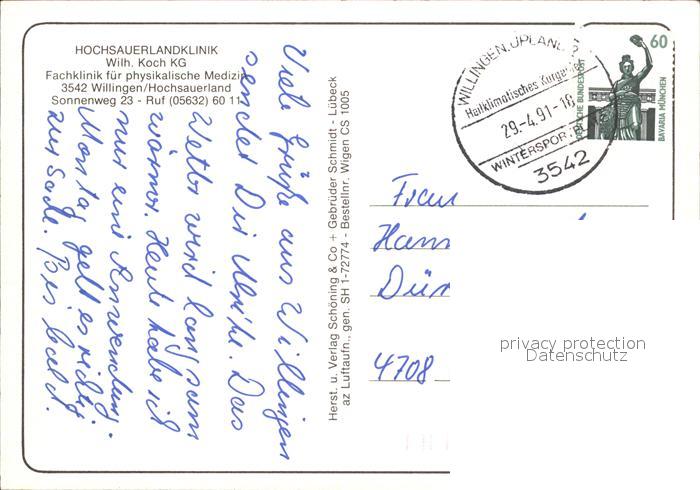 HOCHSAUERLANDKLINIK
Wilh. Koch KG
Fachklinik für physikalische Medizin
3542 Willingen/Hochsauerland
Sonnenweg 23 - Ruf (05632) 60 11
Viele Grüße aus Willingen
sendet Dir Ulrike. Das
Wetter wird langsam
wärmer. Heute habe ich
nur eine Anwendung.
Montag geht es richtig
zur Sache. Bis bald.
Herst. u. Verlag Schöning & Co + Gebrüder Schmidt - Lübeck
az Luftaufn., gen. SH 1-72774 - Bestellnr. Wigen CS 1005
WILLINGEN, UPLAND
Heilklimatisches Kurgebiet
29.-4.91-18
WINTERSPORT
3542
60
DEUTSCHE BUNDESPOST
BAVARIA MÜNCHEN
Frau
Hann
Dür
4708
privacy protection
Datenschutz